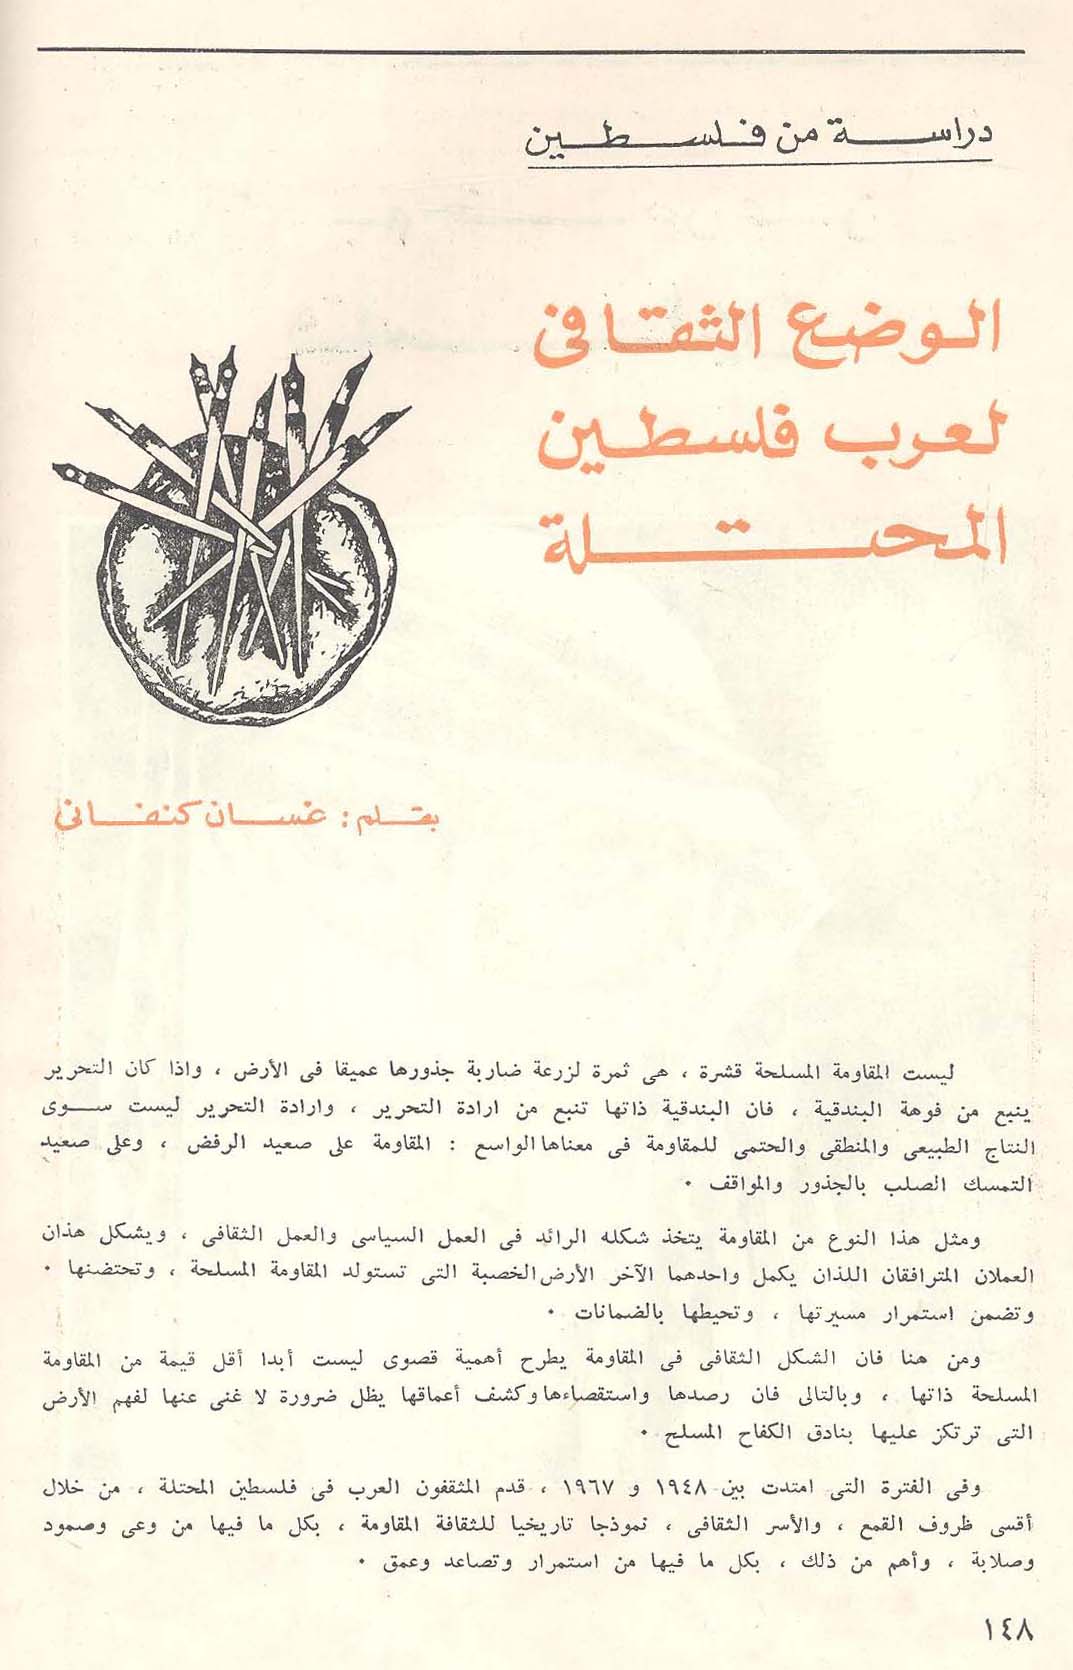 دراسة من فلسطين
الوضع الثقافى
لعرب فلسطين
المحتلة
بقلم : غسان كنفانى
ليست المقاومة المسلحة قشرة ، هى ثمرة لزرعة ضاربة جذورها عميقا فى الأرض ، واذا كان التحرير
ينبع من فوهة البندقية ، فان البندقية ذاتها تنبع من ارادة التحرير ، وارادة التحرير ليست سوى
النتاج الطبيعى والمنطقى والحتمى للمقاومة فى معناها الواسع : المقاومة على صعيد الرفض ، وعلى صعيد
التمسك الصلب بالجذور والمواقف .
ومثل هذا النوع من المقاومة يتخذ شكله الرائد فى العمل السياسى والعمل الثقافى ، ويشكل هذان
العملان المترافقان اللذان يكمل واحدهما الآخر الأرض الخصبة التى تستولد المقاومة المسلحة ، وتحتضنها .
وتضمن استمرار مسيرتها ، وتحيطها بالضمانات .
ومن هنا فان الشكل الثقافى فى المقاومة يطرح أهمية قصوى ليست أبدا أقل قيمة من المقاومة
المسلحة ذاتها ، وبالتالى فان رصدها واستقصاءها وكشف أعماقها يظل ضرورة لا غنى عنها لفهم الأرض
التى ترتكز عليها بنادق الكفاح المسلح .
وفى الفترة التى امتدت بين ١٩٤٨ و ١٩٦٧ ، قدم المثقفون العرب فى فلسطين المحتلة ، من خلال
أقسى ظروف القمع ، والأسر الثقافى ، نموذجا تاريخيا للثقافة المقاومة ، بكل ما فيها من وعى وصمود
وصلابة ، وأهم من ذلك ، بكل ما فيها من استمرار وتصاعد وعمق .
١٤٨